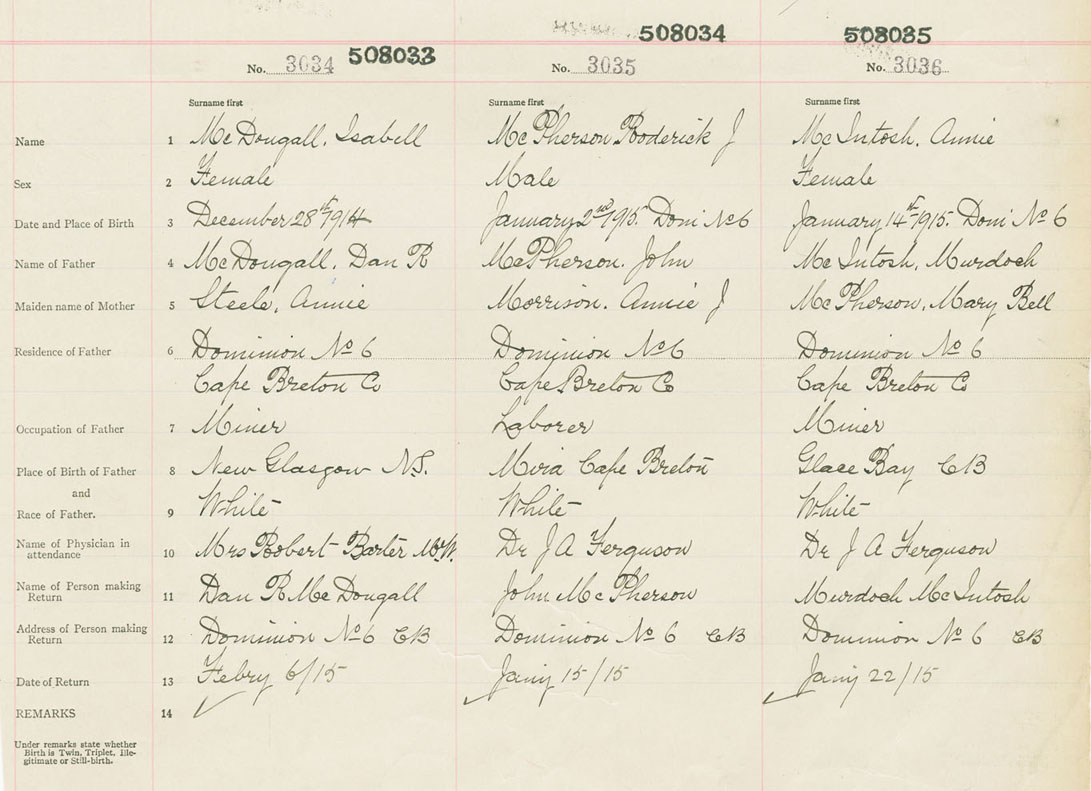 508033 508034 508035
No. 3034 No. 3035 No. 3036
Surname first Surname first Surname first
Name 1 McDougall, Isabell McPherson Roderick J McIntosh, Annie
Sex 2 Female Male Female
Date and Place of Birth 3 December 28th 1914 January 2nd 1915. Dom No 6 January 14th 1915. Dom No 6
Name of Father 4 McDougall, Dan R McPherson. John McIntosh, Murdoch
Maiden name of Mother 5 Steele, Annie Morrison. Annie J McPherson, Mary Bell
Residence of Father 6 Dominion No 6 Dominion No 6 Dominion No 6
Cape Breton Co Cape Breton Co Cape Breton Co
Occupation of Father 7 Miner Laborer Miner
Place of Birth of Father 8 New Glasgow N.S. Mira Cape Breton Glace Bay CB
and
Race of Father. 9 White White White
Name of Physician in
attendance 10 Mrs Robert Barter Dr J A Ferguson Dr J A Ferguson
Name of Person making
Return 11 Dan R McDougall John McPherson Murdoch McIntosh
Address of Person making
Return 12 Dominion No 6 CB Dominion No 6 CB Dominion No 6 CB
Date of Return 13 Febry 6/15 Jany 15/15 Jany 22/15
REMARKS 14
Under remarks state whether
Birth is Twin, Triplet, Ille-
gitimate or Still-birth.